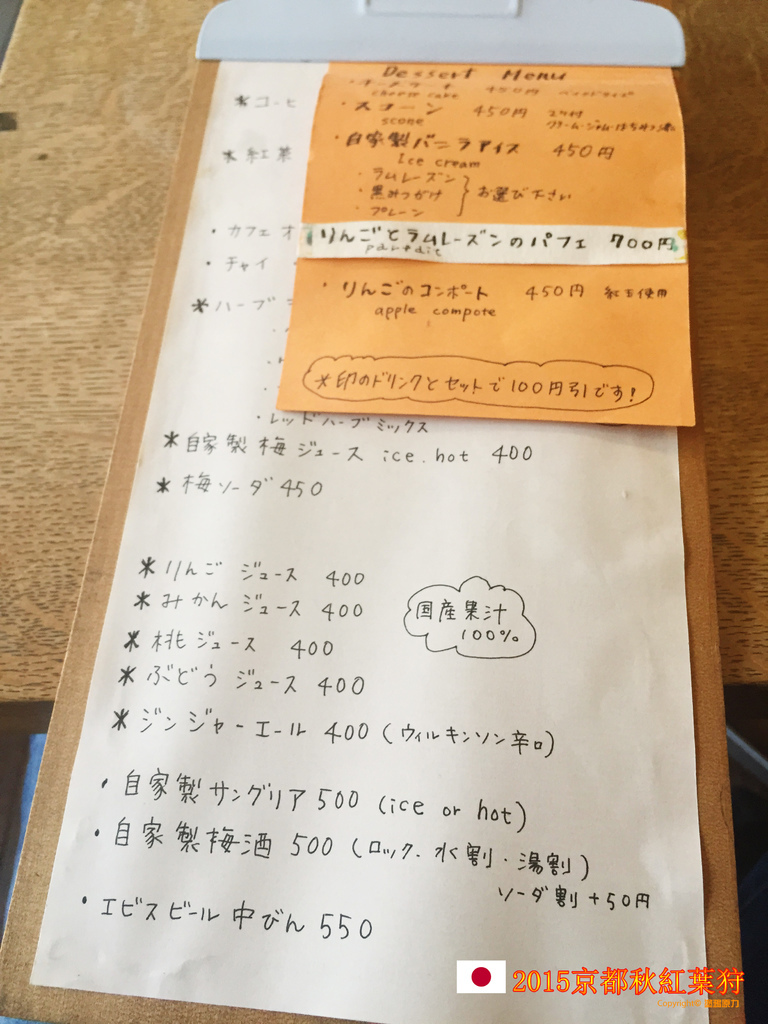 Dessert Menu
cheese cake 450円
・スコーン 450円 2ケ付
scone クリーム・ジャム・はちみつ
・自家製バニラアイス 450円
Ice cream
・ラムレーズン
・黒みつがけ お選び下さい
・プレーン
りんごとラムレーズンのパフェ 700円
・りんごのコンポート 450円 紅玉使用
apple compote
*印のドリンクとセットで100円引です!
*コーヒ
*紅茶
・カフェオ
・チャイ
*ハーブ
・レッドハーブミックス
*自家製梅ジュース ice.hot 400
*梅ソーダ 450
*りんごジュース 400
*みかんジュース 400
*桃ジュース 400
*ぶどうジュース 400
国産果汁
100%
*ジンジャーエール 400 (ウィルキンソン辛口)
・自家製サングリア 500 (ice or hot)
・自家製梅酒 500 (ロック.水割・湯割)
ソーダ割+50円
・エビスビール 中びん 550
2015京都秋紅葉狩